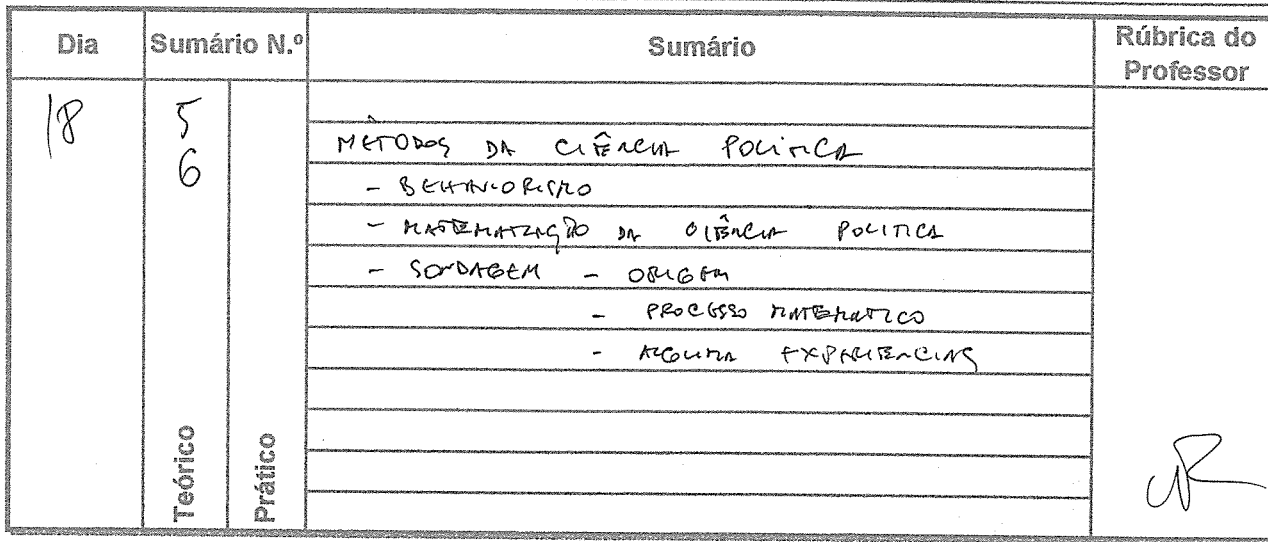 Dia Sumário N.º Sumário Rúbrica do Professor
18 5
6
MÉTODOS DA CIÊNCIA POLÍTICA
- BEHAVIORISMO
- MATEMATIZAÇÃO DA CIÊNCIA POLITICA
- SONDAGEM - ORIGEM
- PROCESSO MATEMATICO
- ALGUMA EXPERIENCIAS
Teórico Prático